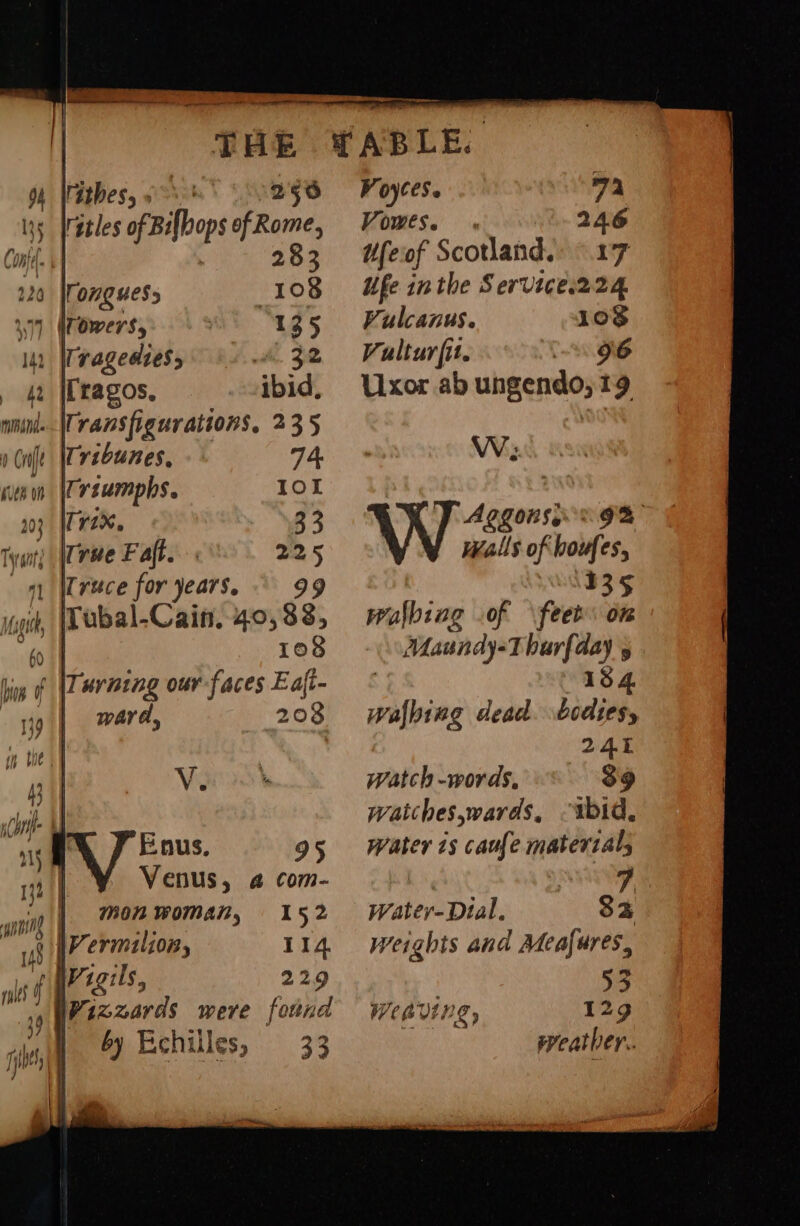 THE TABLE.
Tithes, 256
Titles of Biſhops of Rome,
283
Tongues, 108
Towers, 135
Tragedies, 32
Tragos, ibid.
Transfigurations, 235
Tribunes, 74
Triumphs. 101
Trix, 33
True Faſt. 225
Truce for years. 99
Tubal-Cain, 40, 88,
108
Turning our faces Eaſt-
ward, 208
V.
VEnus. 95
Venus, a com-
mon woman, 152
Vermilion, 114
Vigils, 229
Vizzards were found
by Echilles, 33
Voyces. 72
Vowes. 246
Uſe of Scotland. 17
Uſe in the Service. 224
Vulcanus. 108
Vulturſit. 96
Uxor ab ungendo, 19
W.
WAggons, 92
Walls of houſes,
135
waſhing of feet on
Maundy-Thurſday,
184
waſhing dead bodies,
241
watch-words, 89
watches, wards, ibid.
Water is cauſe material,
7
Water-Dial. 82
Weights and Meaſures,
53
Weaving, 129
Weather.
94
135
220
377
142
42
203
71
60
139
in the
43
215
132
148
rules of
39